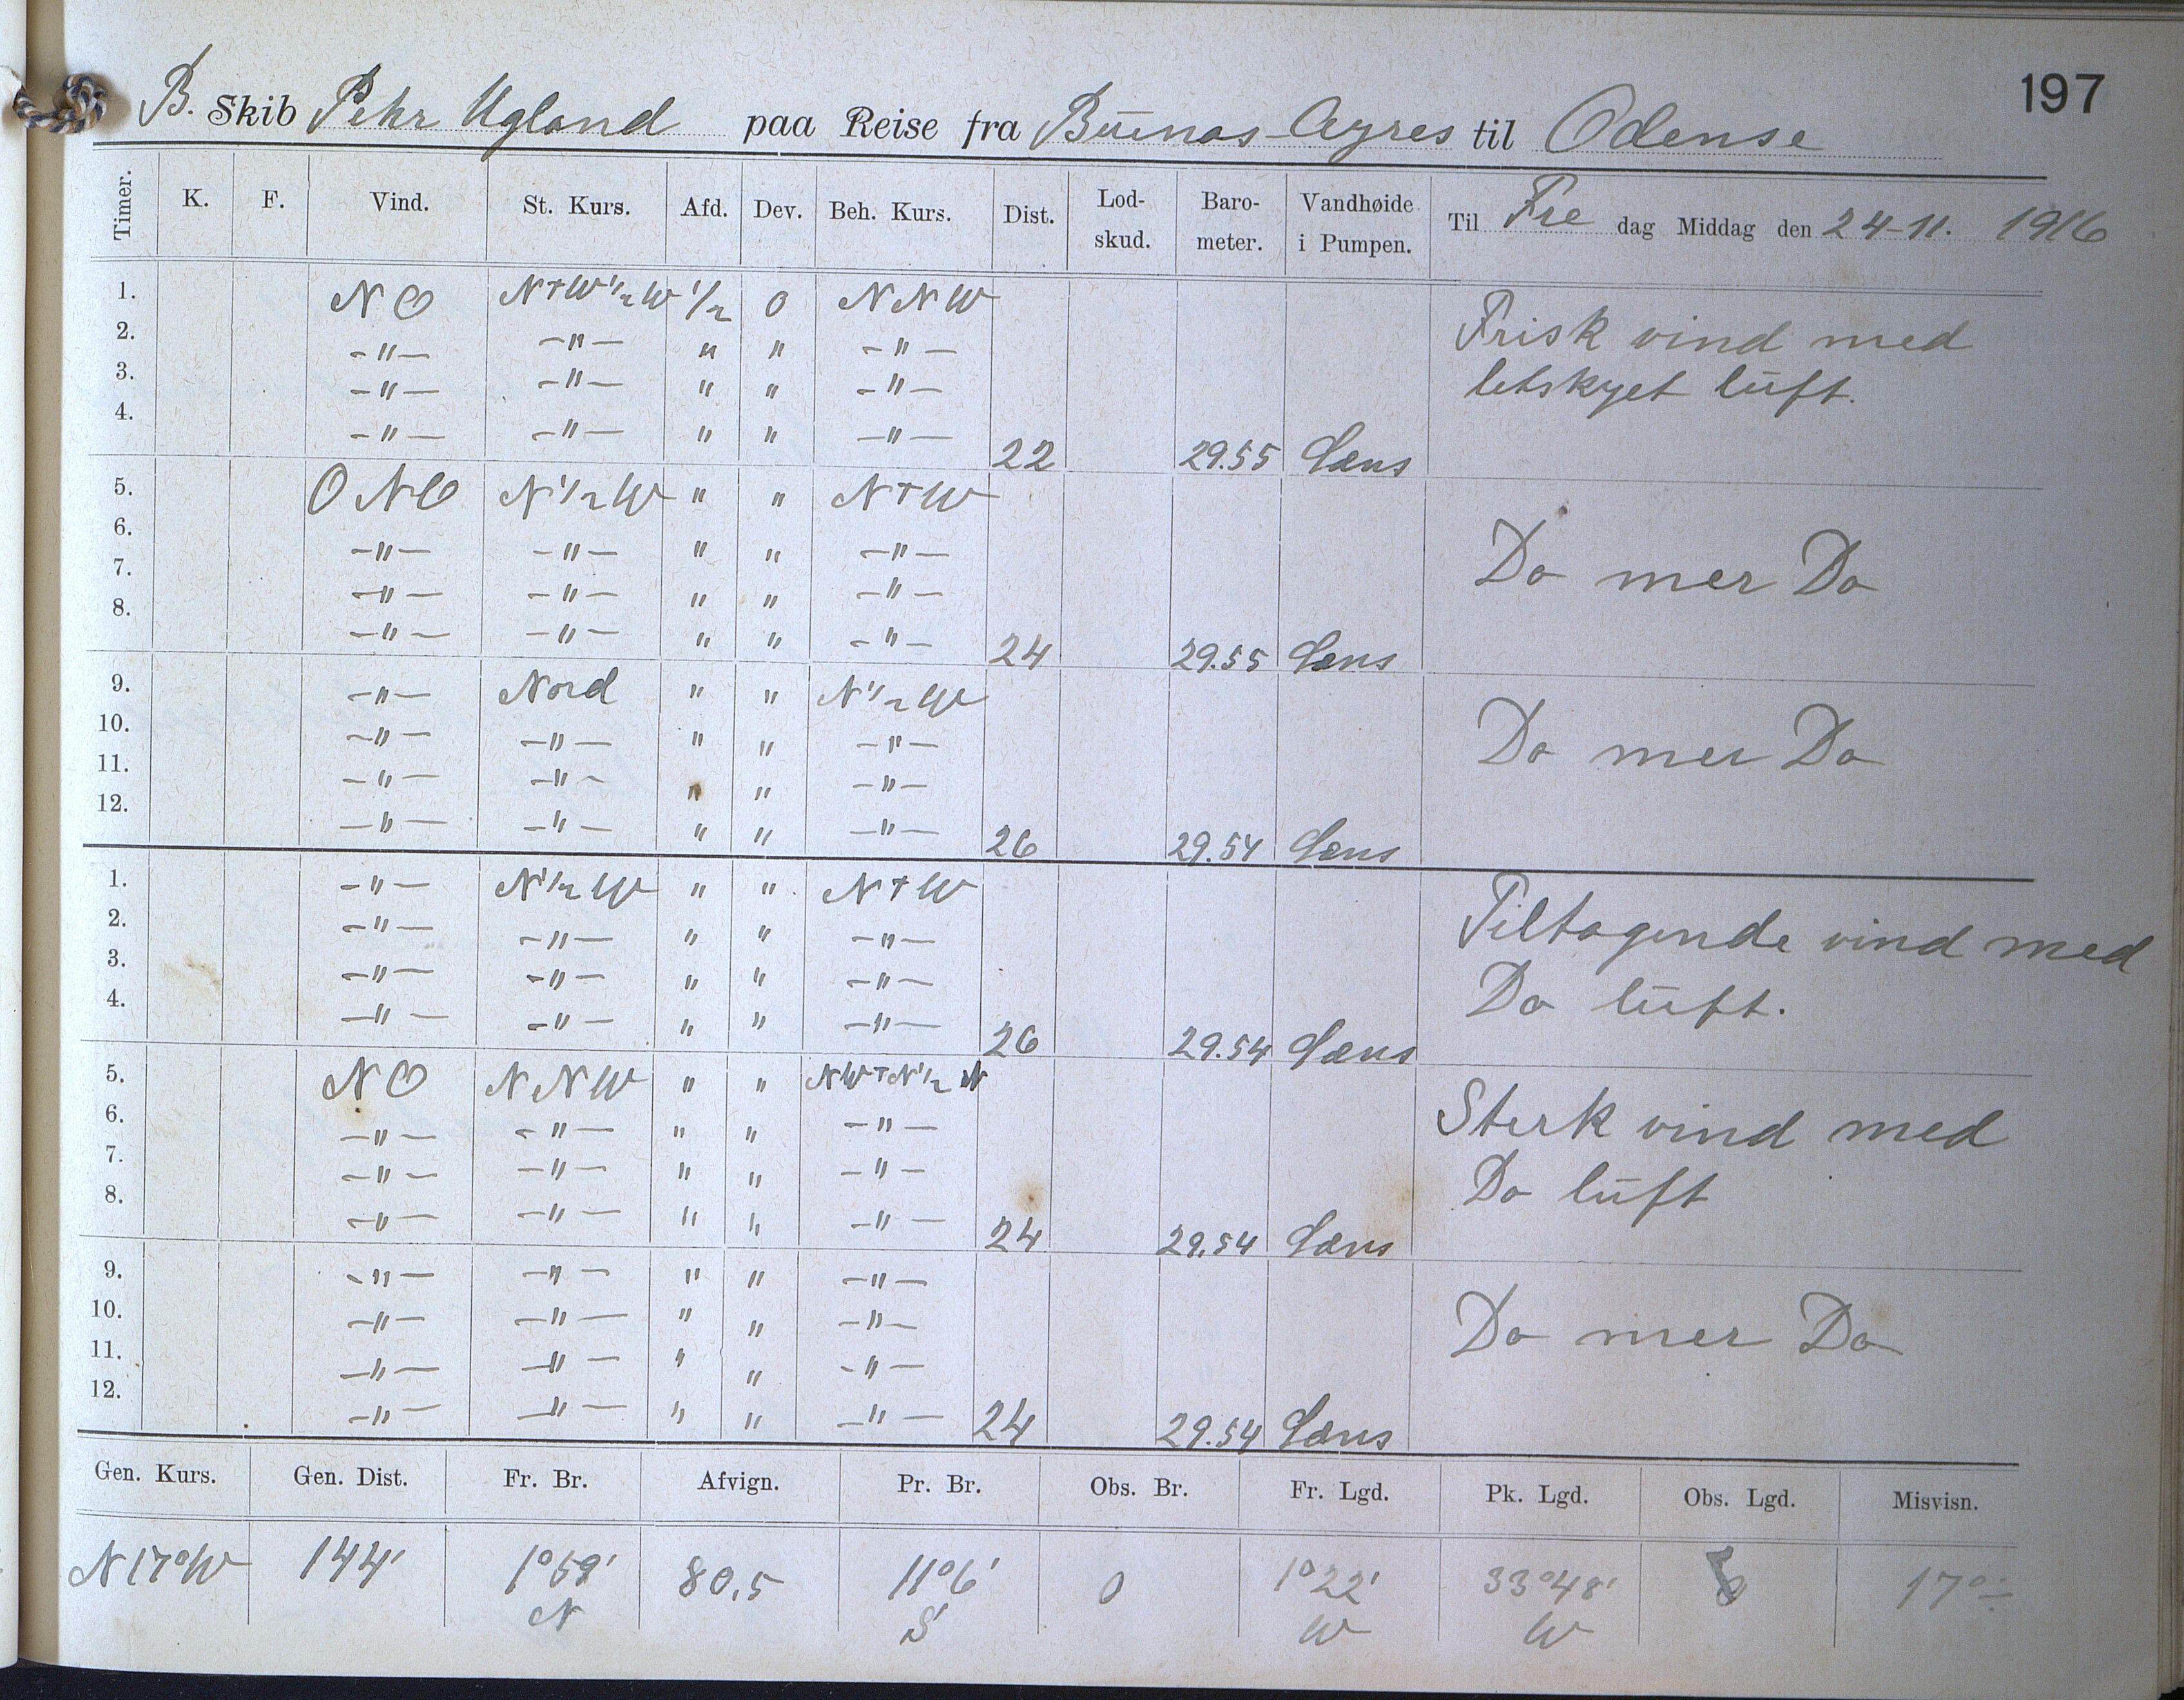 197
B. Skib Pehr Ugland paa Reise fra Buenos-Ayres til Odense
Timer. K. F. Vind. St. Kurs. Afd. Dev. Beh. Kurs. Dist. Lod-skud. Baro-meter. Vandhøide i Pumpen. Til Fre dag Middag den 24-11. 1916
1. NO NTW½W ½ 0 NNW Frisk vind med
2. -"- -"- " " -"-
3. -"- -"- " " -"- letskyet luft.
4. -"- -"- " " -"- 22 29.55 Læns
5. ONO N½W " " NTW
6. -"- -"- " " -"- Do mer Do
7. -"- -"- " " -"-
8. -"- -"- " " -"- 24 29.55 Læns
9. -"- Nord " " N½W
10. -"- -"- " " -"- Do mer Do
11. -"- -"- " " -"-
12. -"- -"- " " -"- 26 29.54 Læns
1. -"- N½W " " NTW Tiltagende vind med
2. -"- -"- " " -"-
3. -"- -"- " " -"- Do luft.
4. -"- -"- " " -"- 26 29.54 Læns
5. NO NNW " " NWTN½N Sterk vind med
6. -"- -"- " " -"-
7. -"- -"- " " -"- Do luft
8. -"- -"- " " -"- 24 29.54 Læns
9. -"- -"- " " -"-
10. -"- -"- " " -"- Do mer Do
11. -"- -"- " " -"-
12. -"- -"- " " -"- 24 29.54 Læns
Gen. Kurs. Gen. Dist. Fr. Br. Afvign. Pr. Br. Obs. Br. Fr. Lgd. Pk. Lgd. Obs. Lgd. Misvisn.
N17°W 144' 1°59' 80,5 11°6' 0 1°22' 33°48' 17°
N S W W